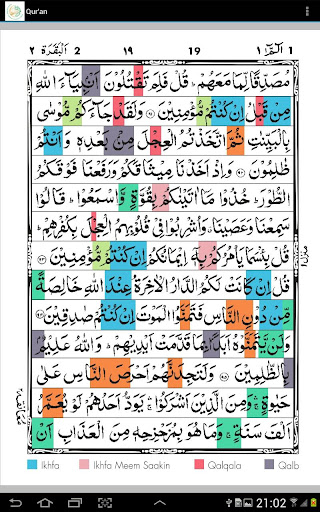 Qur'an
٢ اَلْبَقَرَة 2 ١٩ 19 الٓمّٓ ١ 1
مُصَدِّقًا لِّمَا مَعَهُمْ ؕ قُلْ فَلِمَ تَقْتُلُوْنَ اَنْۢبِيَآءَ اللّٰهِ
مِنْ قَبْلُ اِنْ كُنْتُمْ مُّؤْمِنِيْنَ ﴿٩١﴾ وَلَقَدْ جَآءَكُمْ مُّوْسٰى
بِالْبَيِّنٰتِ ثُمَّ اتَّخَذْتُمُ الْعِجْلَ مِنْۢ بَعْدِهٖ وَاَنْتُمْ
ظٰلِمُوْنَ ﴿٩٢﴾ وَاِذْ اَخَذْنَا مِيْثَاقَكُمْ وَرَفَعْنَا فَوْقَكُمُ
الطُّوْرَ ؕ خُذُوْا مَاۤ اٰتَيْنٰكُمْ بِقُوَّةٍ وَّاسْمَعُوْا ؕ قَالُوْا
سَمِعْنَا وَعَصَيْنَا ۗ وَاُشْرِبُوْا فِيْ قُلُوْبِهِمُ الْعِجْلَ بِكُفْرِهِمْ ؕ
قُلْ بِئْسَمَا يَاْمُرُكُمْ بِهٖۤ اِيْمَانُكُمْ اِنْ كُنْتُمْ مُّؤْمِنِيْنَ ﴿٩٣﴾
قُلْ اِنْ كَانَتْ لَكُمُ الدَّارُ الْاٰخِرَةُ عِنْدَ اللّٰهِ خَالِصَةً
مِّنْ دُوْنِ النَّاسِ فَتَمَنَّوُا الْمَوْتَ اِنْ كُنْتُمْ صٰدِقِيْنَ ﴿٩٤﴾
وَلَنْ يَّتَمَنَّوْهُ اَبَدًۢا بِمَا قَدَّمَتْ اَيْدِيْهِمْ ؕ وَاللّٰهُ عَلِيْمٌۢ
بِالظّٰلِمِيْنَ ﴿٩٥﴾ وَلَتَجِدَنَّهُمْ اَحْرَصَ النَّاسِ عَلٰى
حَيٰوةٍ ۛۚ وَمِنَ الَّذِيْنَ اَشْرَكُوْا ۛۚ يَوَدُّ اَحَدُهُمْ لَوْ يُعَمَّرُ
اَلْفَ سَنَةٍ ۚ وَمَا هُوَ بِمُزَحْزِحِهٖ مِنَ الْعَذَابِ اَنْ
Ikhfa Ikhfa Meem Saakin Qalqala Qalb
21:02